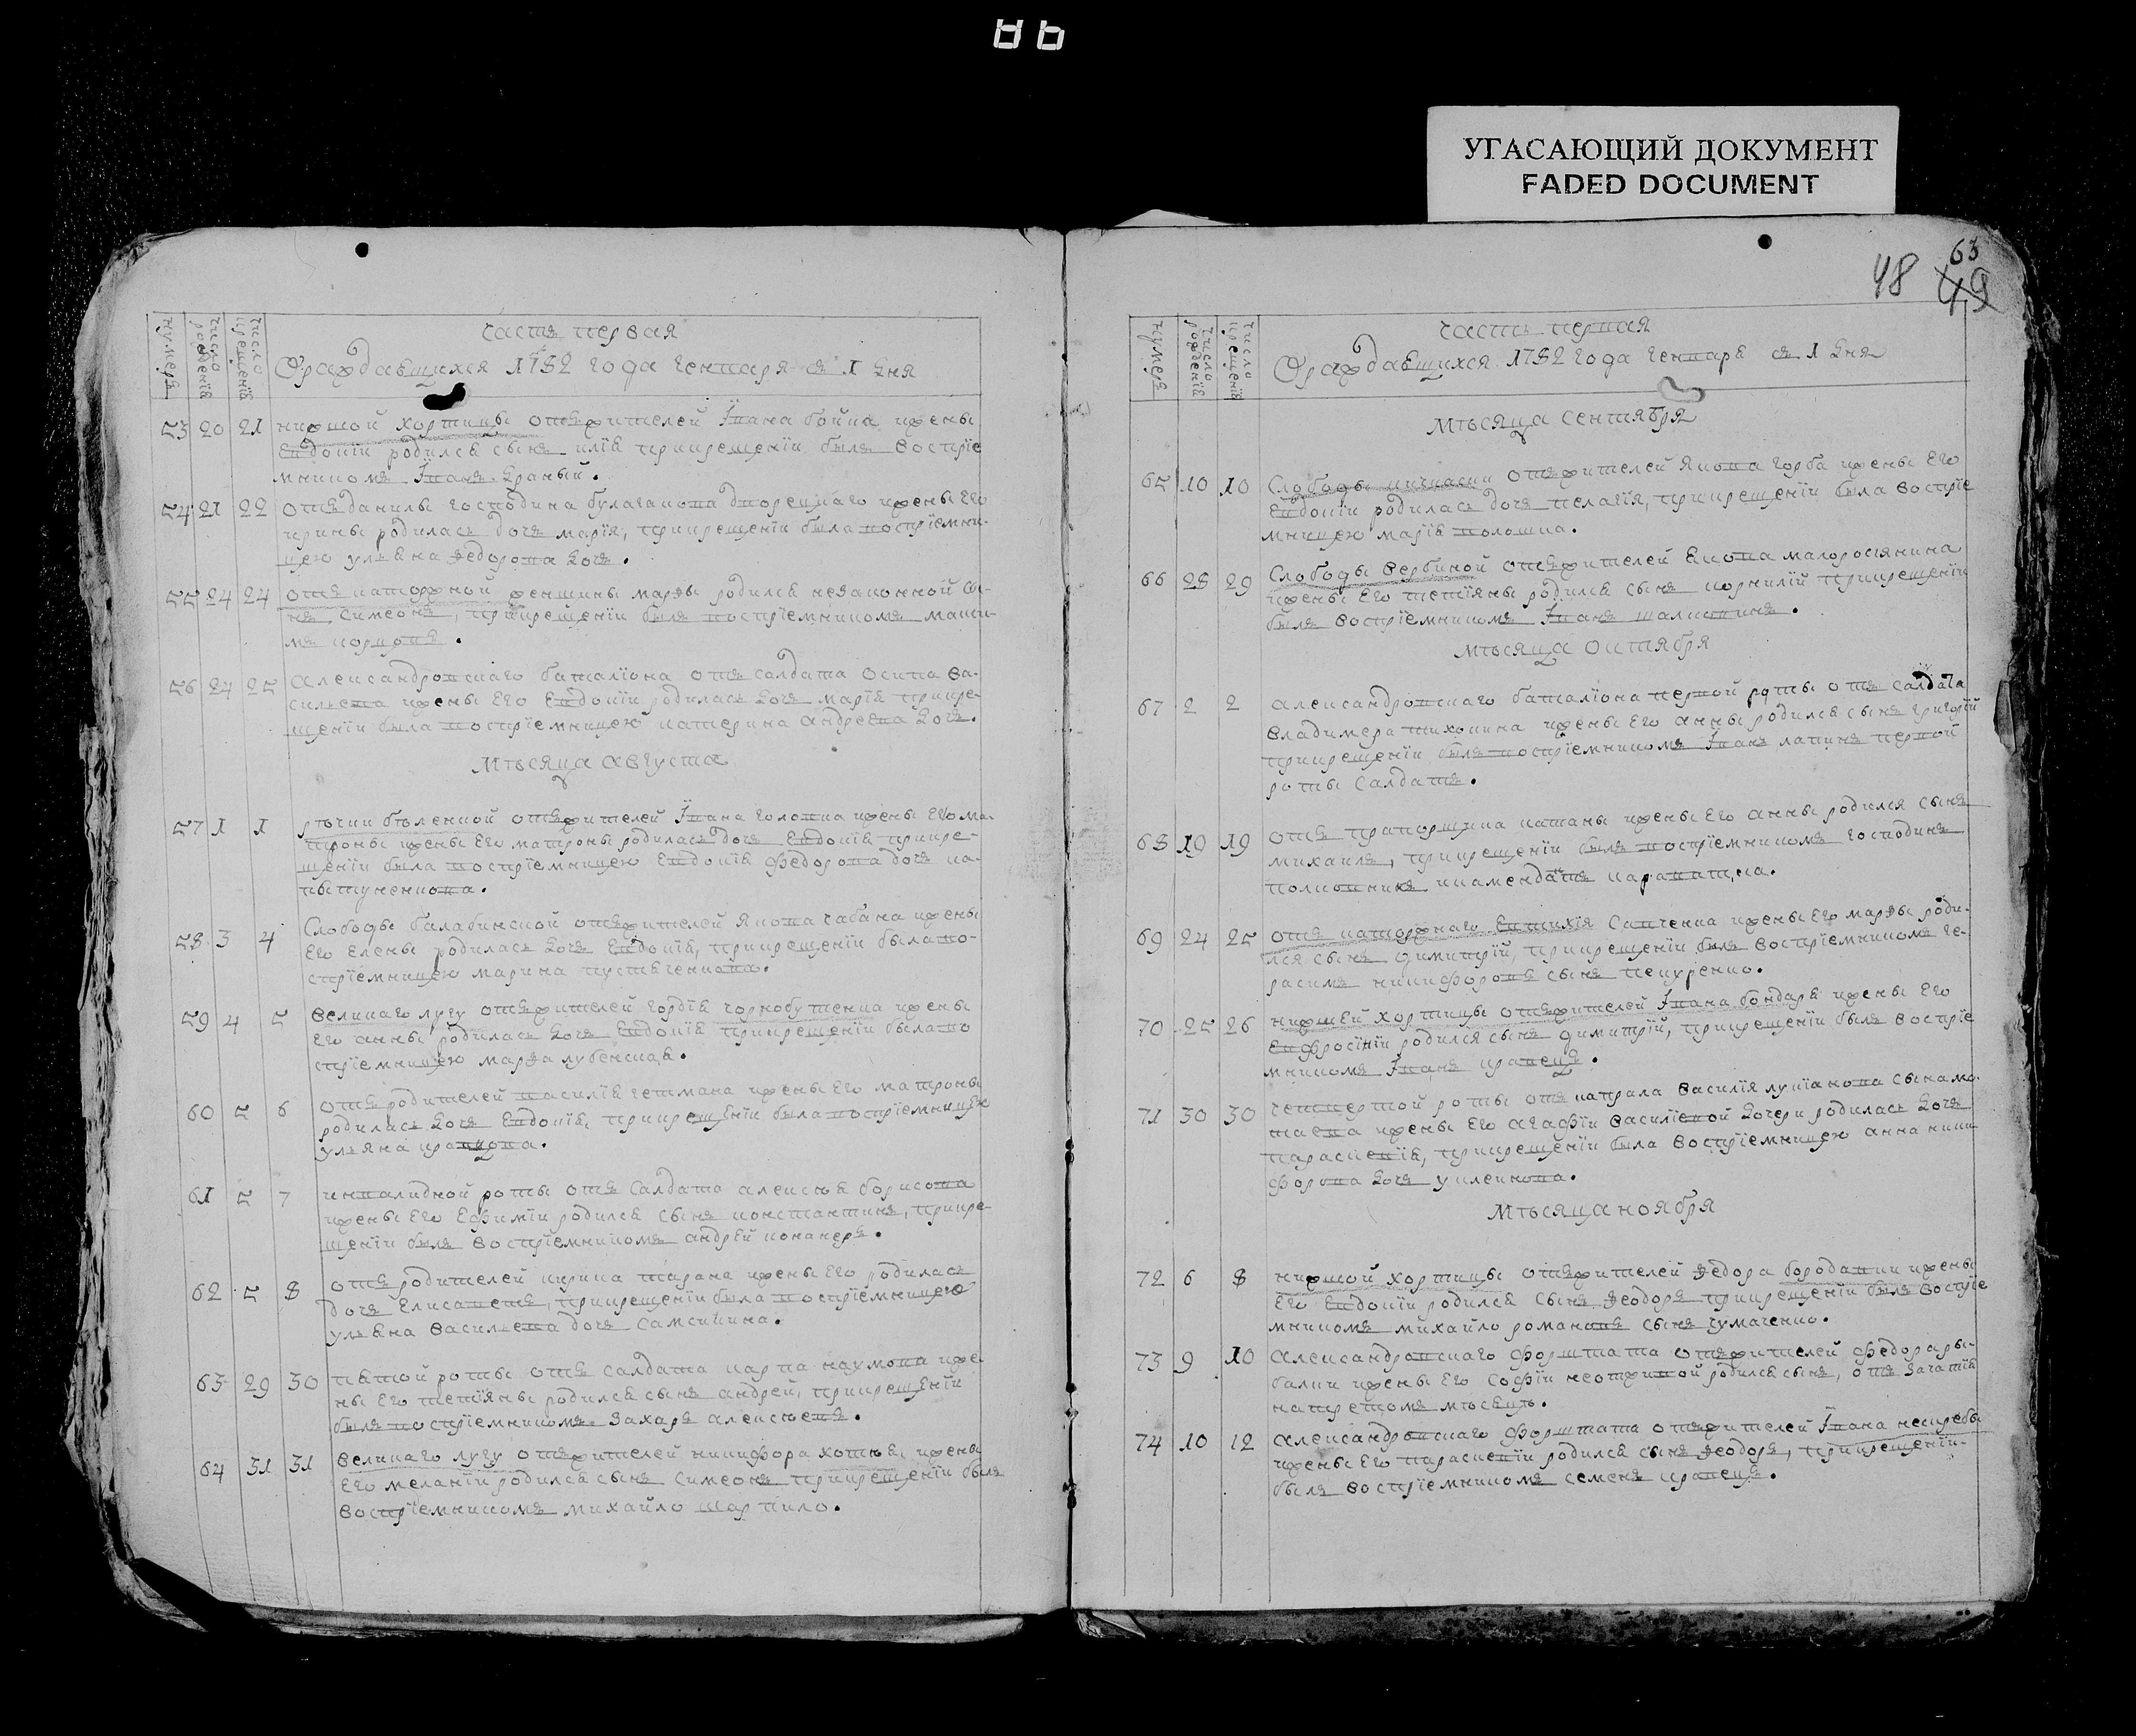 УГАСАЮЩИЙ ДОКУМЕНТ
FADED DOCUMENT
63
48 49
нумеръ
число рожденїя
число крещенїя
часть первая
О раждавшихся 1782 года генваря съ 1 дня
53 20 21 нижшой хортицы отъ жителей Їъвана бойка жены
Евдокїи родился сынъ илїя при крещенїи былъ воспрїе
мникомъ Їванъ браный.
54 21 22 отъ данилы господина булгакова дворецкаго жены его
ирины родилась дочъ марїя, при крещенїи была воспрїемни-
цею ульяна ѳедорова дочъ.
55 24 24 отъ каторжной женщины марѳы родился незаконной сы-
нъ, симеонъ, при крещенїи былъ воспрїемникомъ макси-
мъ
56 24 25 александровскаго баталїона отъ салдата осипа ва-
сильева жены его Евдокїи родилась дочъ марїя при кре-
щенїи была воспрїемницею катерина андреева дочъ.
мѣсяца августа
57 1 1 рѣчки бѣленкой отъ жителей Їъвана головка жены его ма-
троны жены его матроны родилась дочъ Евдокїя при кре-
щенїи была воспрїемницею Евдокїя федорова дочъ
58 3 4 слободы балабинской отъ жителей якова чабана жены
его елены родилась дочъ Евдокїя, при крещенїи была во-
спрїемницею марина
59 4 5 великаго лугу отъ жителей гордѣя чорнобутенка жены
его анны родилась дочъ Евдокїя при крещенїи была во
спрїемницею марѳа лубенская.
60 5 6 отъ родителей василїя гетмана жены его матроны
родилась дочъ Евдокїя, при крещенїи была воспрїемницею
ульяна кравцова.
61 5 7 инвалидной роты отъ салдата алексѣя борисова
жены его Ефимїи родился сынъ константинъ, при кре-
щенїи былъ воспрїемникомъ андрей
62 5 8 отъ родителей кирика тарана жены его родилась
дочъ Елисаветъ, при крещенїи была воспрїемницею
ульяна васильева дочъ самсикина.
63 29 30 пятой роты отъ салдата карпа наумова же-
ны его тетїяны родился сынъ андрей, при крещенїи
былъ воспрїемникомъ захаръ алексѣевъ.
64 31 31 великаго лугу отъ жителей никифора котъка, жены
его меланїи родился сынъ симеонъ при крещенїи былъ
воспрїемникомъ михайло шарпило.
нумеръ
число рожденїя
число крещенїя
часть первая
О раждавшихся 1782 года генваря съ 1 дня
мѣсяца сентября
65 10 10 слободы мичиаски отъ жителей якова горба жены его
Евдокїи родилась дочъ пелагїя, при крещенїи была воспрїе
мницею марїя волошка.
66 28 29 слободы вербиной отъ жителей якова малоросїянина
жены его тетїяны родился сынъ корнилїй при крещенїи
былъ воспрїемникомъ Їванъ
мѣсяца октября
67 2 2 александровскаго баталїона первой роты отъ салдата
владимера тихонина жены его анны родился сынъ григорїй
при крещенїи былъ воспрїемникомъ Їванъ лапинъ первой
роты салдатъ.
68 19 19 отъ прапорщика катаны жены его анны родился сынъ
михаилъ, при крещенїи былъ воспрїемникомъ господинъ
полковникъ
69 24 25 отъ каторжнаго Евтихїя савченка жены его марѳы роди-
лся сынъ димитрїй, при крещенїи былъ воспрїемникомъ ге-
расимъ никифоровъ сынъ пекуренко.
70 25 26 нижшей хортицы отъ жителей Їъвана бондаря жены его
Евфросїнїи родился сынъ димитрїй, при крещенїи былъ воспрїе
мникомъ Їванъ кравецъ.
71 30 30 четвертой роты отъ капрала василїя лукїанова сына ма-
твева жены его агафїи василїевой дочери родилась дочъ
параскевїя, при крещенїи была воспрїемницею анна ники
форова дочъ
мѣсяца ноября
72 6 8 нижшой хортицы отъ жителей ѳедора бородавки жены
его Евдокїи родился сынъ ѳеодоръ при крещенїи былъ воспрїе
мникомъ михайло романовъ сынъ чумаченко.
73 9 10 александровскаго форштата отъ жителей федора ры-
балки жены его софїи неоживой родился сынъ, отъ зачатїя
на третомъ мѣсяцъ.
74 10 12 александровскаго форштата отъ жителей Їъвана
жены его параскевїи родился сынъ ѳеодоръ, при крещенїи
былъ воспрїемникомъ семенъ кравецъ.